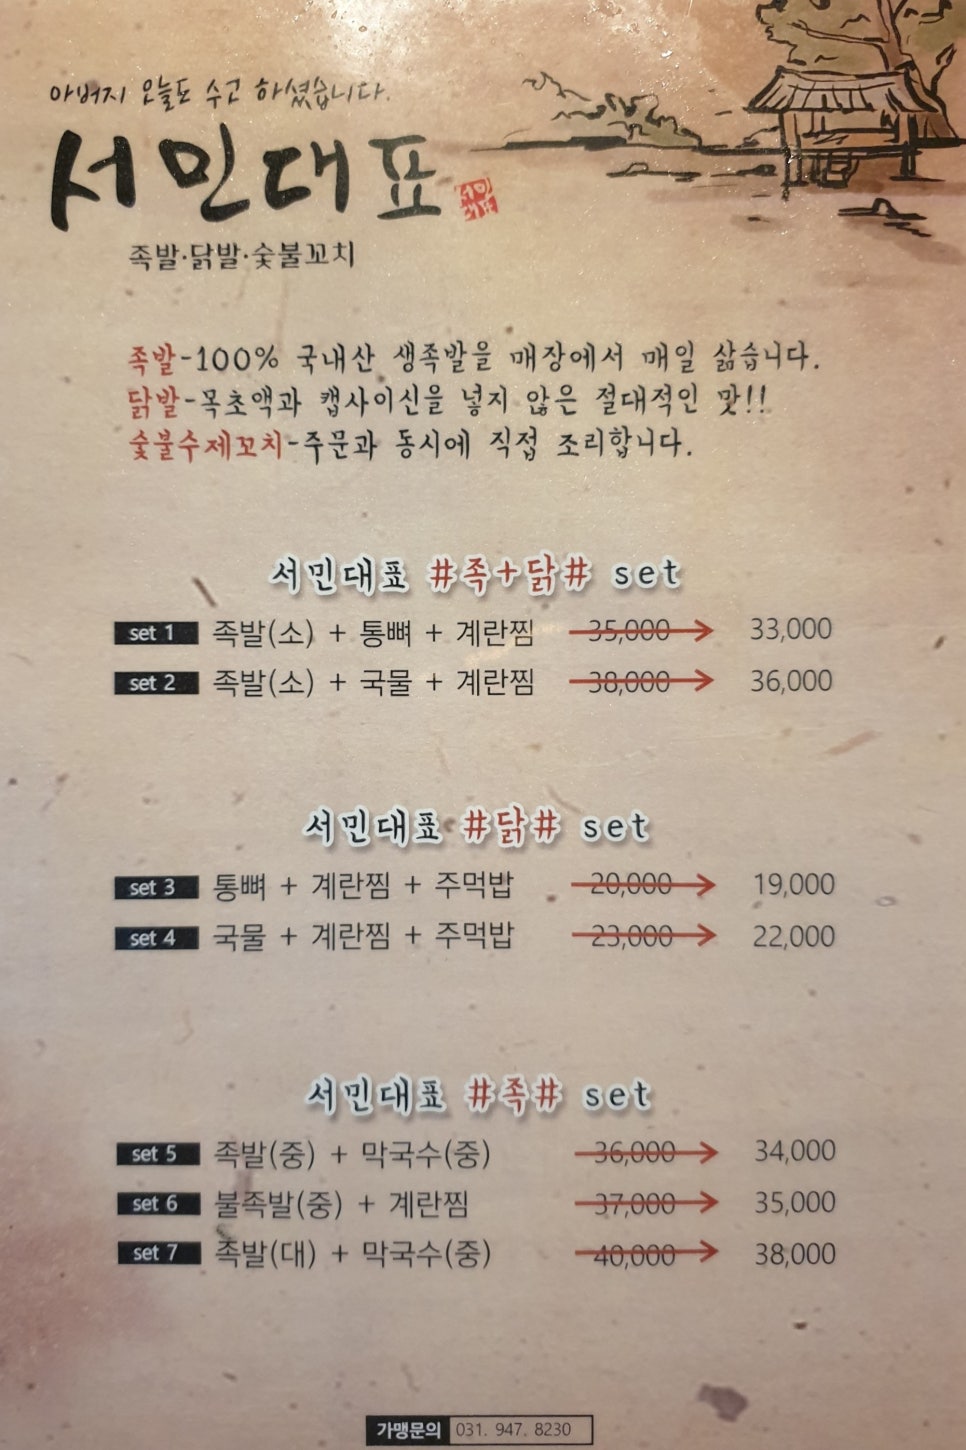 아버지 오늘도 수고 하셨습니다.
서민대표
서민대표
족발·닭발·숯불꼬치
족발-100% 국내산 생족발을 매장에서 매일 삶습니다.
닭발-목초액과 캡사이신을 넣지 않은 절대적인 맛!!
숯불수제꼬치-주문과 동시에 직접 조리합니다.
서민대표 #족+닭# set
set 1 족발(소) + 통뼈 + 계란찜 35,000 33,000
set 2 족발(소) + 국물 + 계란찜 38,000 36,000
서민대표 #닭# set
set 3 통뼈 + 계란찜 + 주먹밥 20,000 19,000
set 4 국물 + 계란찜 + 주먹밥 23,000 22,000
서민대표 #족# set
set 5 족발(중) + 막국수(중) 36,000 34,000
set 6 불족발(중) + 계란찜 37,000 35,000
set 7 족발(대) + 막국수(중) 40,000 38,000
가맹문의 031. 947. 8230